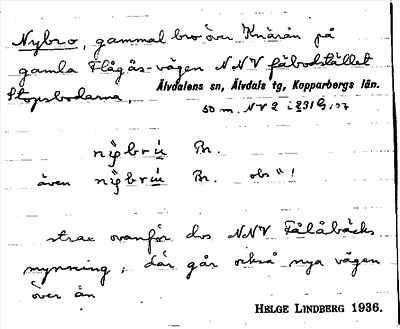 Nybro, gammal bro över Knärån på
gamla Flågås-vägen NNV fäbodstället
Stopsbodarna,
Älvdalens sn, Älvdals tg, Kopparbergs län.
50 m. NV 2 i
Br.
även Br. obs " !
strax ovanför dos NNV Fålåbäcks
mynning; där går också nya vägen
över ån
HELGE LINDBERG 1936.